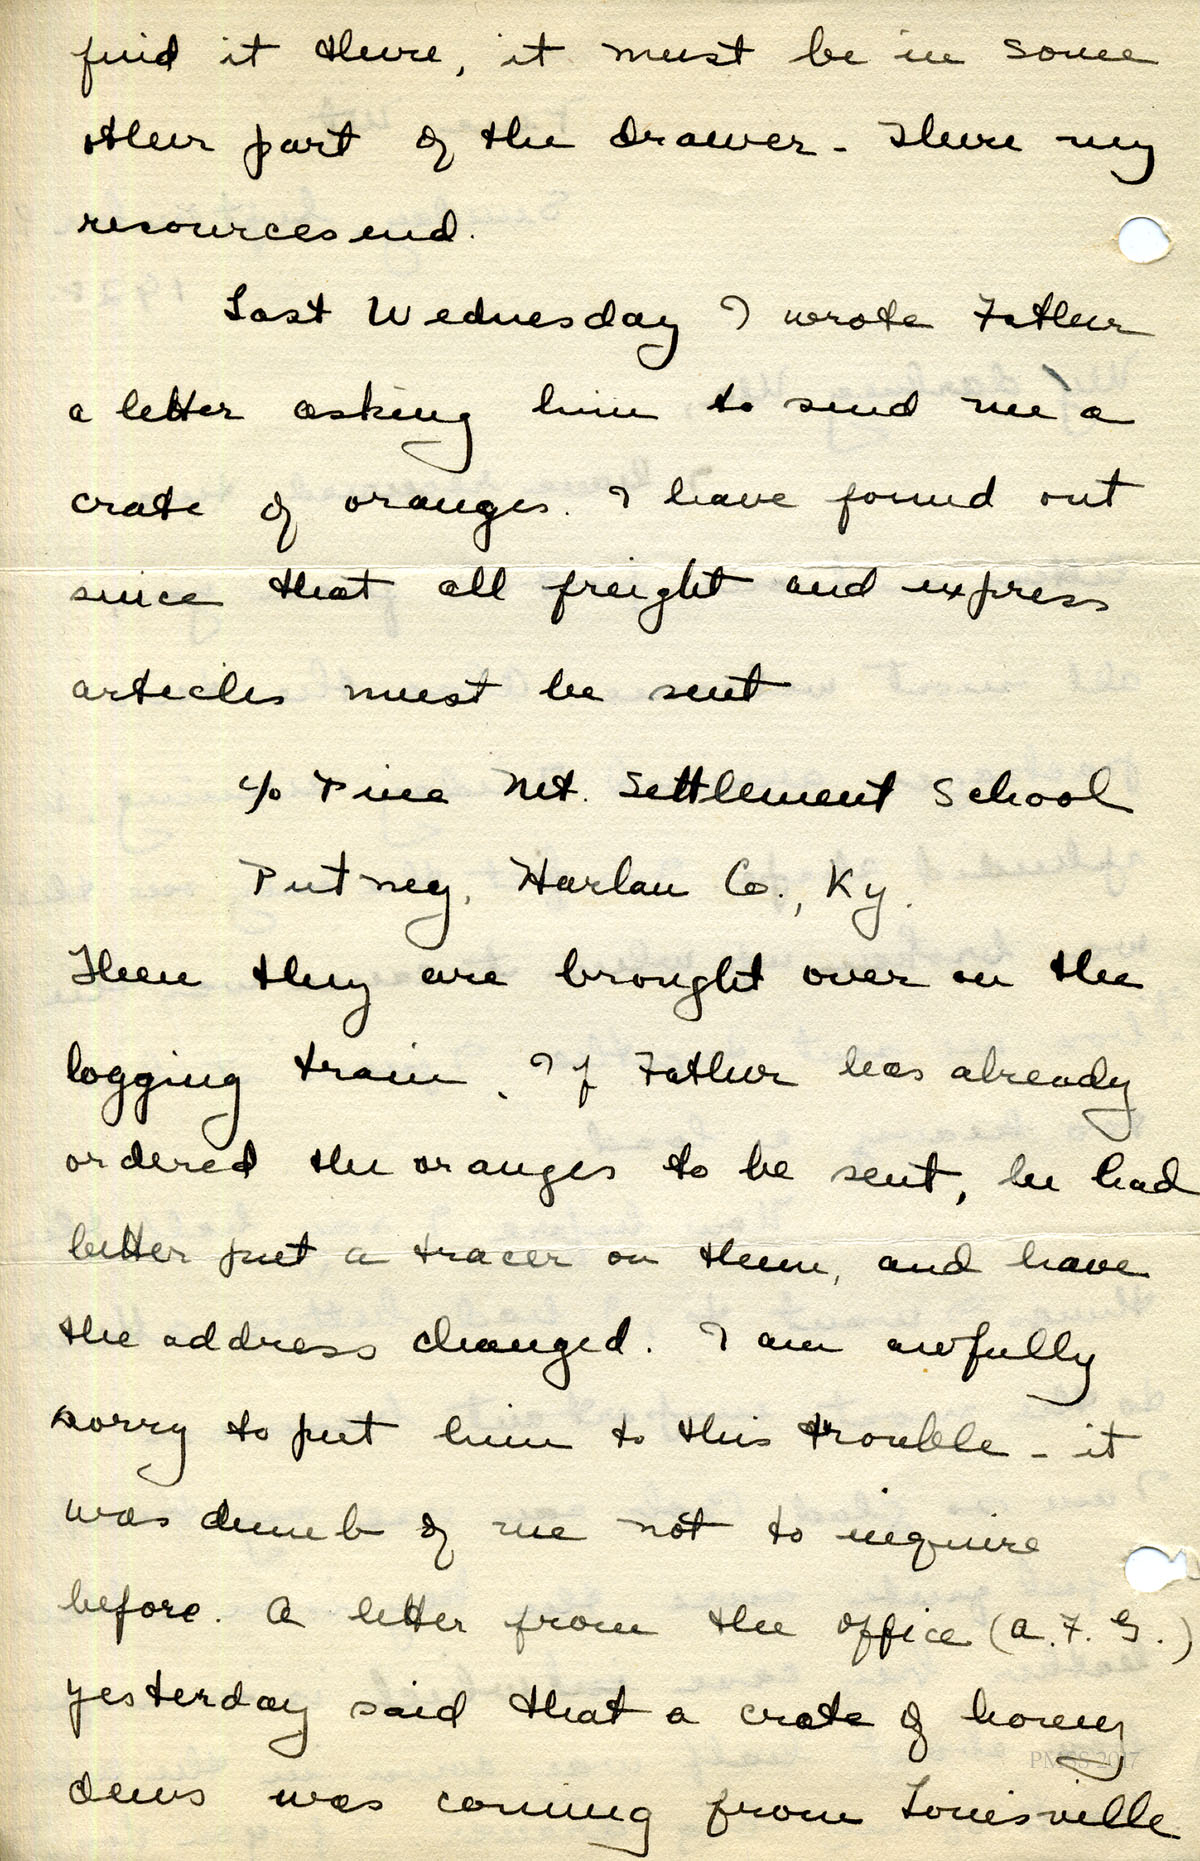 find it there, it must be in some
other part of the drawer - There my
resources end.
Last Wednesday I wrote Father
a letter asking him to send me a
crate of oranges. I have found out
since that all freight and express
articles must be sent
c/o Pine Mt. Settlement School
Putney, Harlan Co., Ky.
Then they are brought over on the
logging train. If Father has already
ordered the oranges to be sent, he had
better put a tracer on them, and have
the address changed. I am awfully
sorry to put him to this trouble - it
was dumb of me not to inquire
before. A letter from the office (A.F.G.)
yesterday said that a crate of honey
dews was coming from Louisville
PMSS 2017